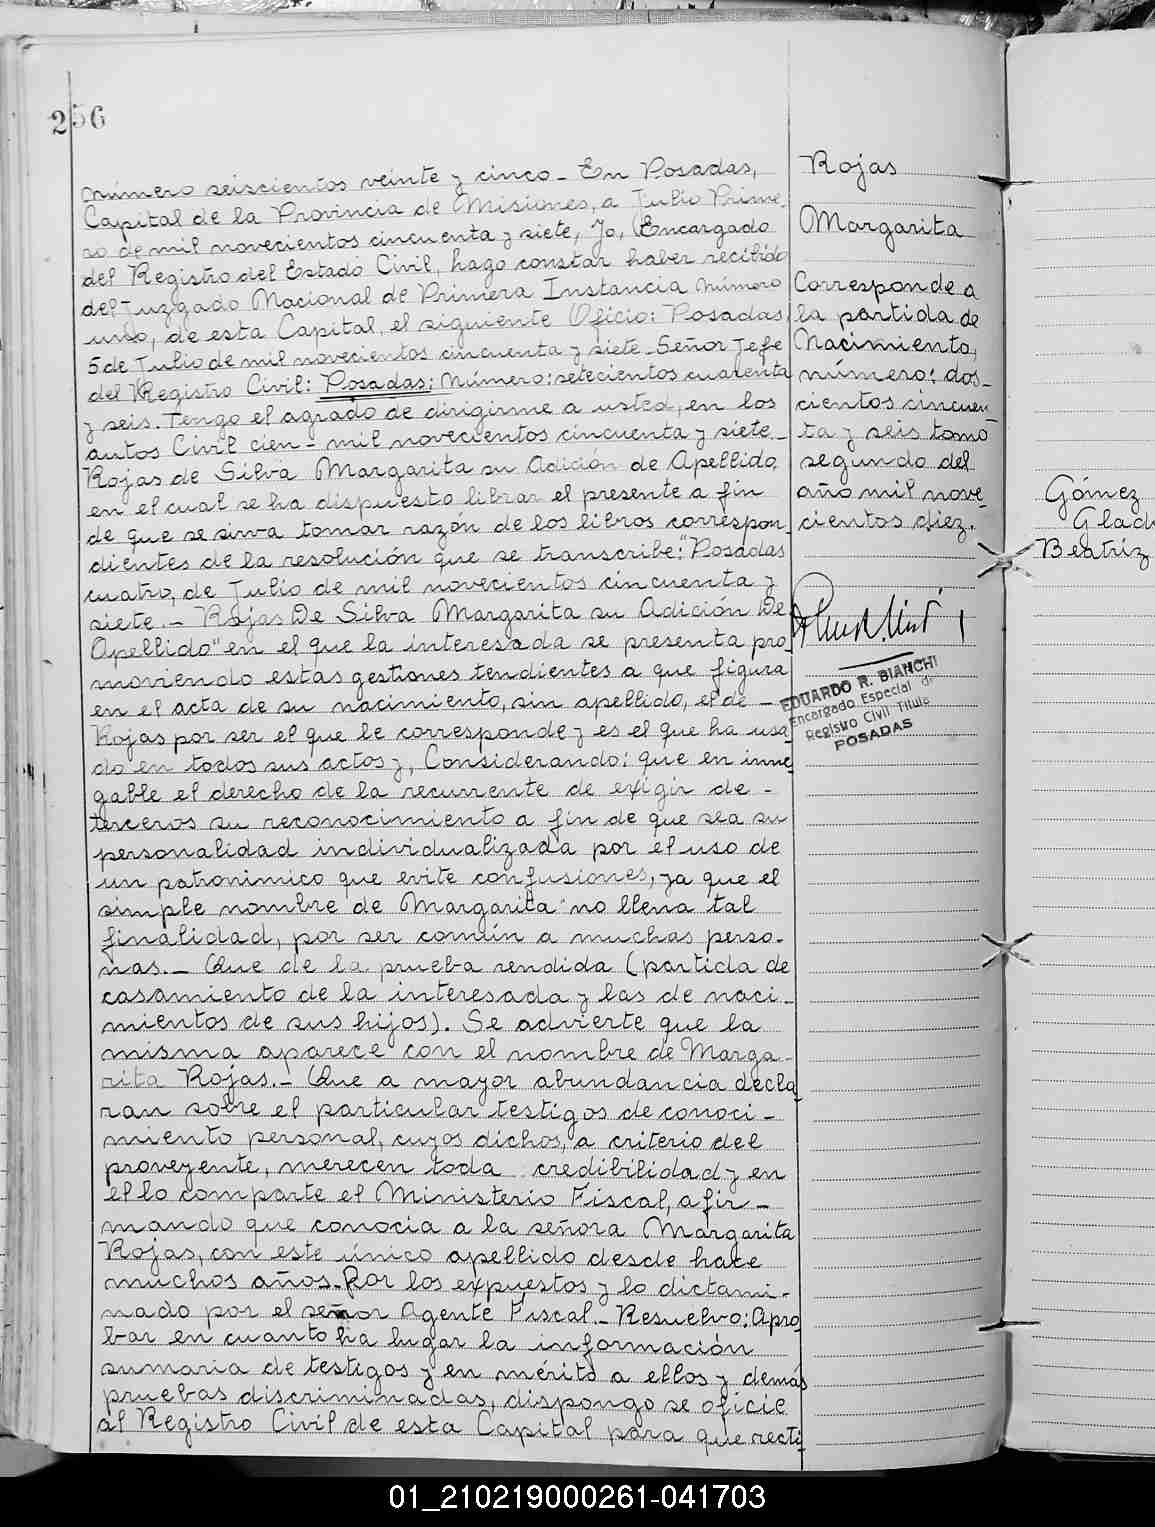 256
número seiscientos veinte y cinco - En Posadas,
Capital de la Provincia de Misiones, a Julio Prime-
ro de mil novecientos cincuenta y siete, Yo, Encargado
del Registro del Estado Civil, hago constar haber recibido
del Juzgado Nacional de Primera Instancia número
uno, de esta Capital, el siguiente Oficio: Posadas,
5 de Julio de mil novecientos cincuenta y siete - Señor Jefe
del Registro Civil: Posadas: Número: setecientos cuarenta
y seis. Tengo el agrado de dirigirme a usted, en los
autos Civil cien - mil novecientos cincuenta y siete -
Rojas de Silva Margarita su Adición de Apellido,
en el cual se ha dispuesto librar el presente a fin
de que se sirva tomar razón de los libros correspon-
dientes de la resolución que se transcribe: "Posadas
cuatro, de Julio de mil novecientos cincuenta y
siete. - Rojas De Silva Margarita su Adición De
Apellido" en el que la interesada se presenta pro-
moviendo estas gestiones tendientes a que figura
en el acta de su nacimiento, sin apellido, el de -
Rojas por ser el que le corresponde y es el que ha usa-
do en todos sus actos y, Considerando: que en inne-
gable el derecho de la recurrente de exigir de -
terceros su reconocimiento a fin de que sea su
personalidad individualizada por el uso de
un patronimico que evite confusiones, ya que el
simple nombre de Margarita no llena tal
finalidad, por ser común a muchas perso-
nas. - Que de la prueba rendida (partida de
casamiento de la interesada y las de naci-
mientos de sus hijos). Se advierte que la
misma aparece con el nombre de Marga-
rita Rojas. - Que a mayor abundancia decla-
ran sobre el particular testigos de conoci-
miento personal, cuyos dichos, a criterio del
proveyente, merecen toda credibilidad y en
ello comparte el Ministerio Fiscal, afir-
mando que conocia a la señora Margarita
Rojas, con este único apellido desde hace
muchos años. Por los expuestos y lo dictami-
nado por el señor Agente Fiscal. - Resuelvo: Apro-
bar en cuanto ha lugar la información
sumaria de testigos y en mérito a ellos y demás
pruebas discriminadas, dispongo se oficie
al Registro Civil de esta Capital para que recti-
Rojas
Margarita
Corresponde a
la partida de
Nacimiento,
número: dos-
cientos cincuen-
ta y seis tomo
segundo del
año mil nove-
cientos diez.
EDUARDO R. BIANCHI
Encargado Especial de
Registro Civil Titular
POSADAS
Gómez
Glad
Beatriz
01_210219000261-041703